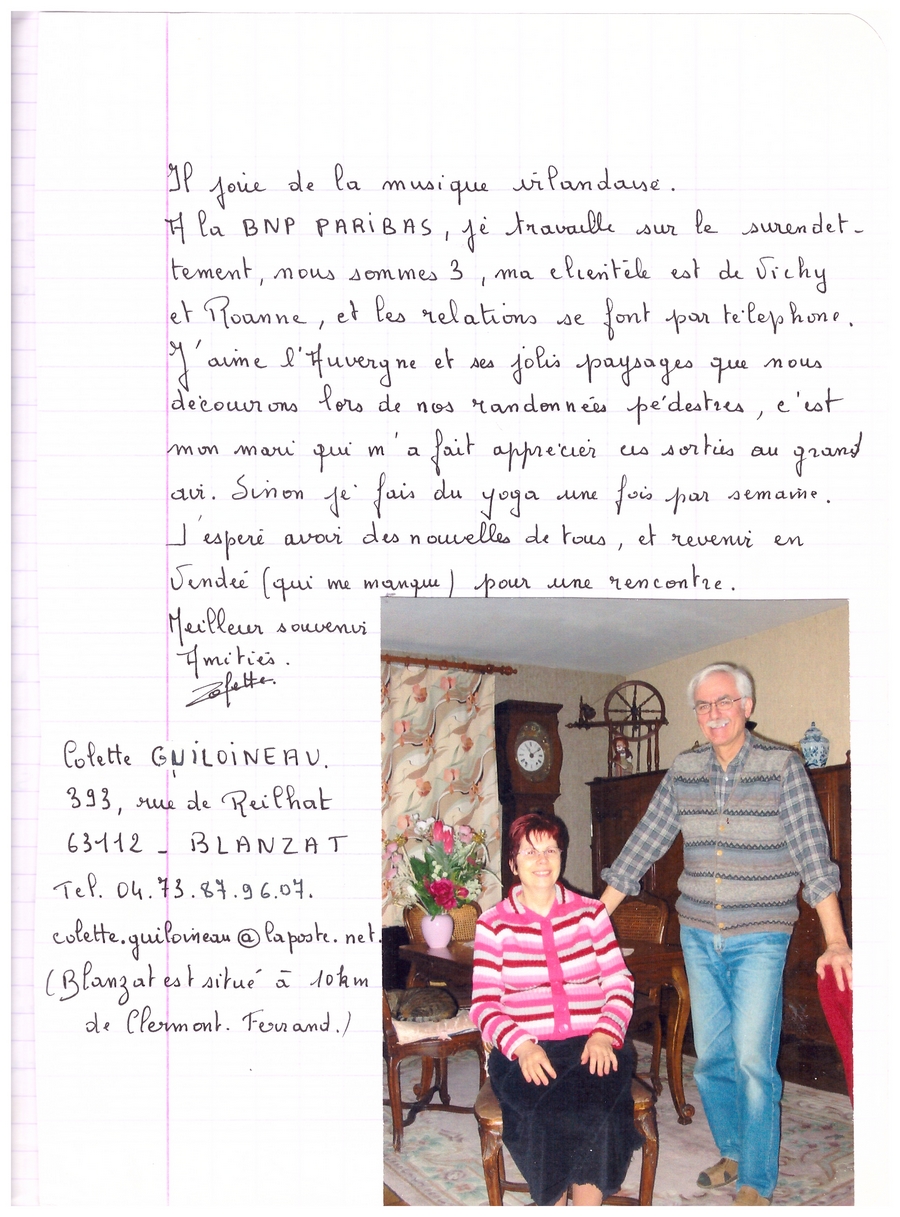 Il joue de la musique irlandaise.
A la BNP PARIBAS, je travaille sur le surendet-
tement, nous sommes 3, ma clientèle est de Vichy
et Roanne, et les relations se font par téléphone.
J'aime l'Auvergne et ses jolis paysages que nous
découvrons lors de nos randonnées pédestres, c'est
mon mari qui m'a fait apprécier ces sorties au grand
air. Sinon je fais du yoga une fois par semaine.
J'espère avoir des nouvelles de tous, et revenir en
Vendée (qui me manque) pour une rencontre.
Meilleur souvenir
Amitiés.
Colette GUILOINEAU.
393, rue de Reilhat
63112 - BLANZAT
Tel. 04.73.87.96.07.
colette.guiloineau@laposte.net.
(Blanzat est situé à 10km
de Clermont. Ferrand.)